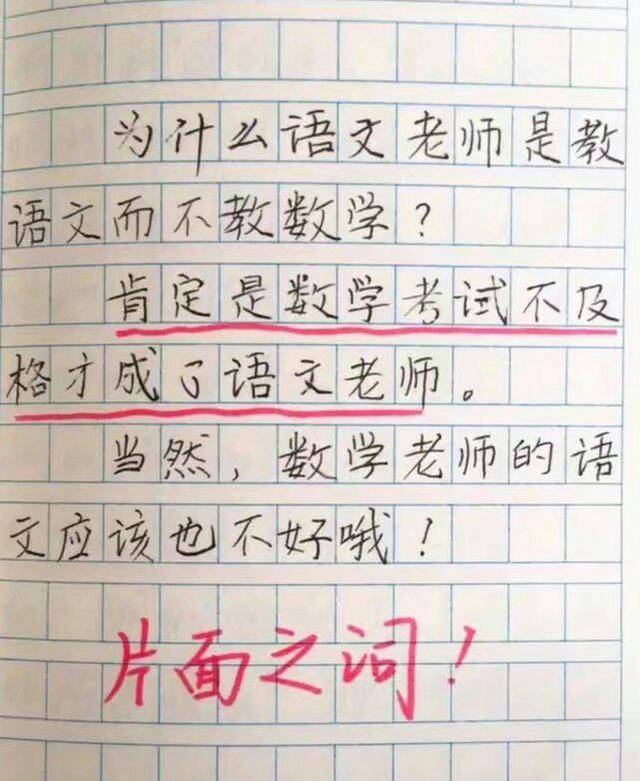 为什么语文老师是教
语文而不教数学？
肯定是数学考试不及
格才成了语文老师。
当然，数学老师的语
文应该也不好哦！
片面之词！